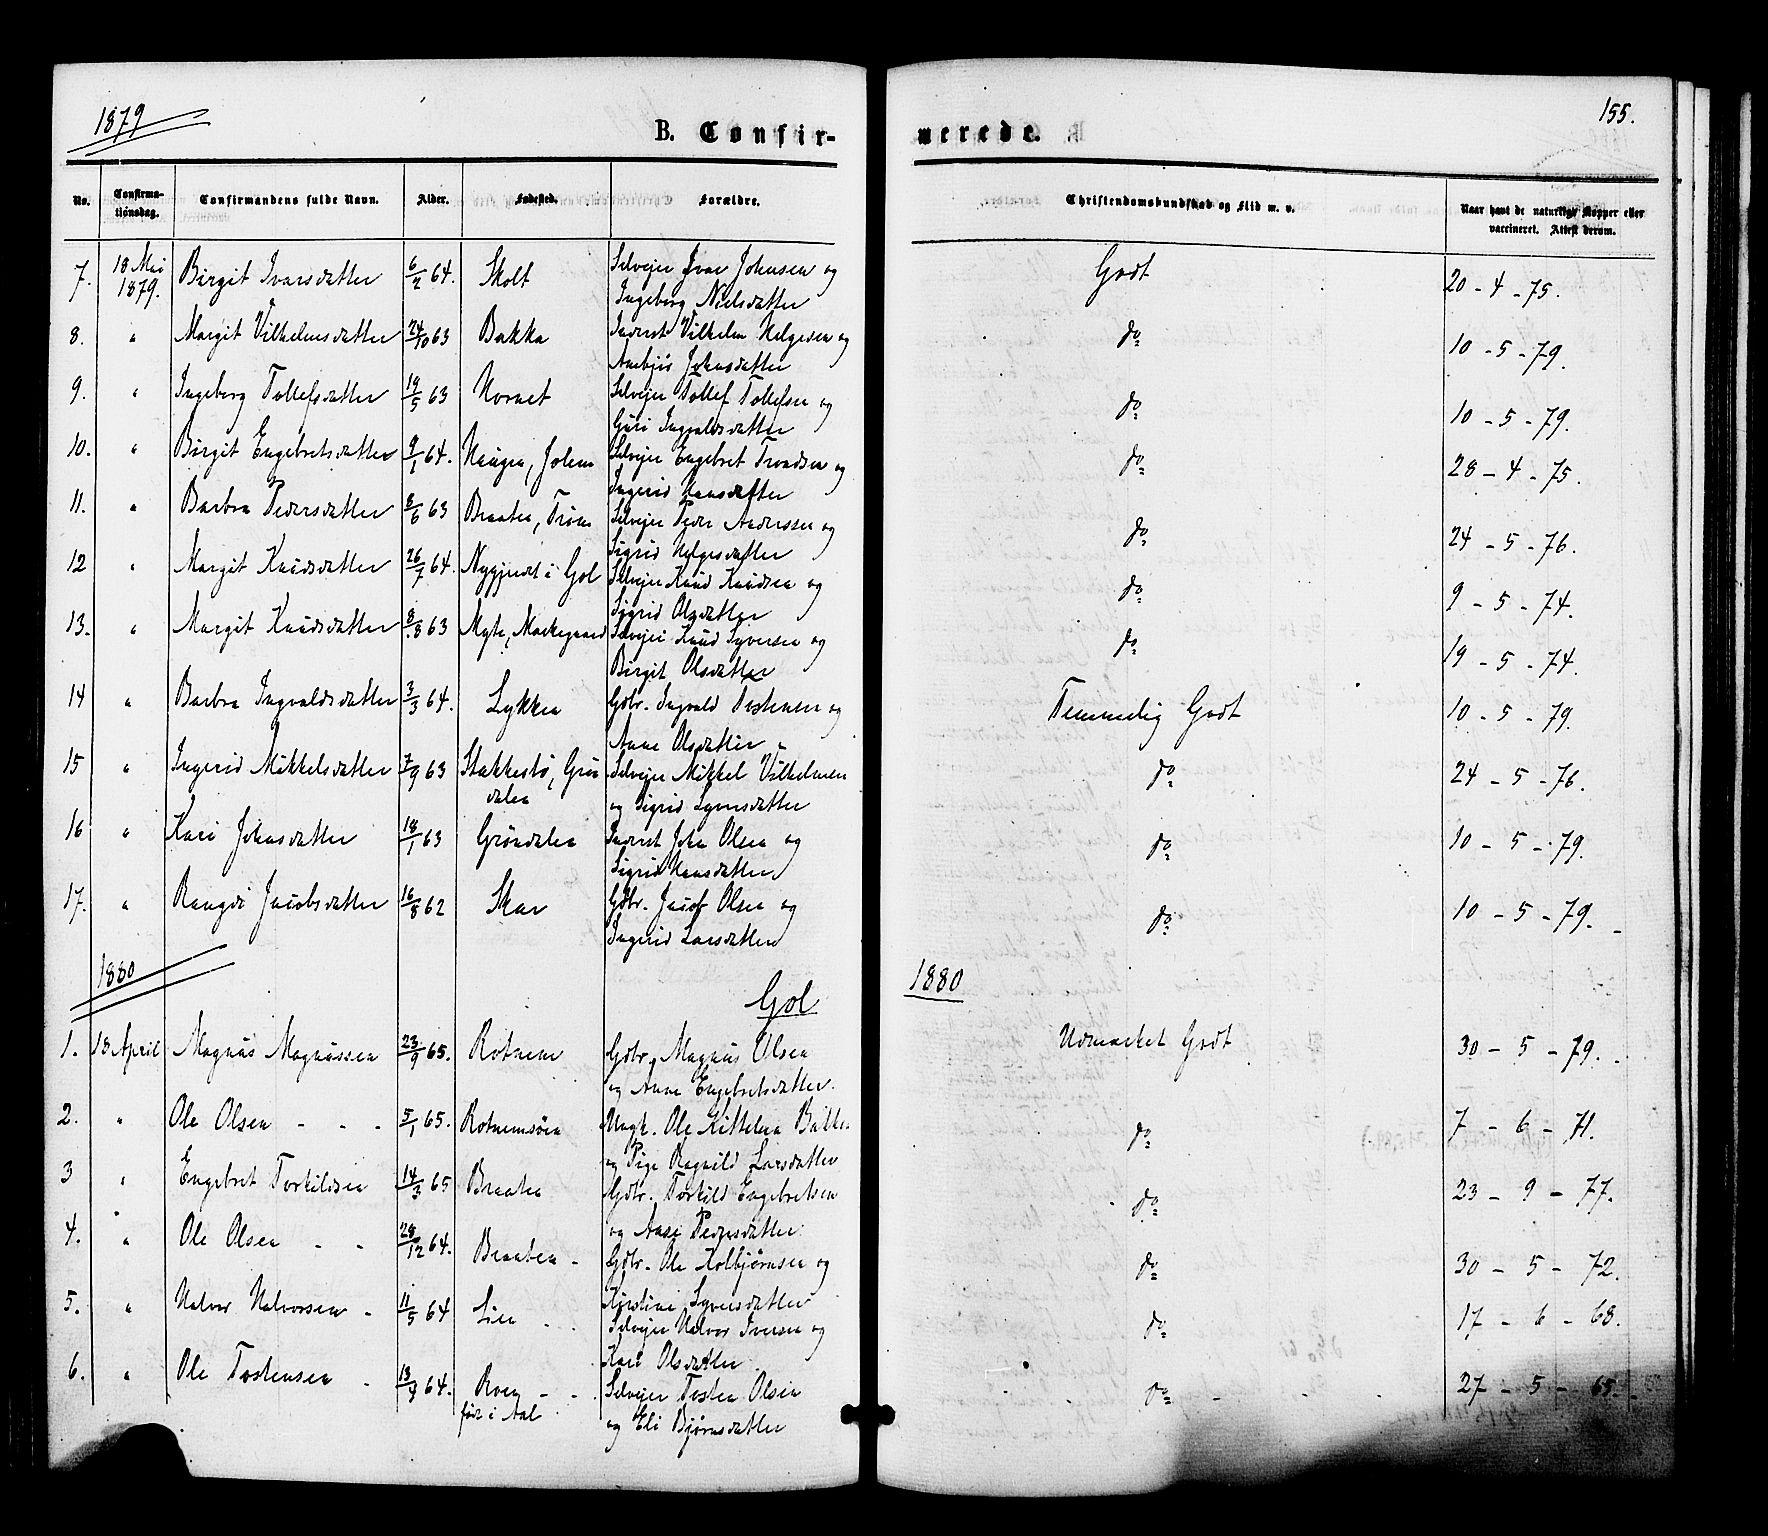 1879
155.
B. Confir-
merede.
No.
Confirma-
tionsdag.
Confirmandens fulde Navn.
Alder.
Fødested.
Forældre.
Christendomskundskab og Flid m. v.
Naar havt de naturlige Kopper eller
vaccineret. Attest derom.
7. 18 Mai 1879. Birgit Ivarsdatter 6/2 64. Skolt Selvejer Ivar Johnsen og Godt 20 - 4 - 75.
Ingeborg Nielsdatter
8. " Margit Vilhelmsdatter 24/10 63 Bakka Inderst Vilhelm Helgesen og do 10 - 5 - 79.
Johnsdatter
9. " Ingeborg Tollefsdatter 19/5 63 Selvejer Tollef Tollefsen og do 10 - 5 - 79.
Guri Ingvaldsdatter
10. " Birgit Engebretsdatter 9/1 64. Haugen, Selvejer Engebret Trondsen og do 28 - 4 - 75.
Ingerid Hansdatter
11. " Barbra Pedersdatter 8/6 63 Braaten, Selvejer Peder Andersen og do 24 - 5 - 76.
Sigrid Helgesdatter
12 " Margit Knudsdatter 26/7 64. i Gol Selvejer Knud Knudsen og do 9 - 5 - 74.
Sigrid Olsdatter
13. " Margit Knudsdatter 8/8 63 Selvejer Knud Syversen og do 19 - 5 - 74.
Birgit Olsdatter
14 " Barbra Ingvaldsdatter 3/3 64. Lykken Gdbr. Ingvald Tostensen og Temmelig Godt 10 - 5 - 79.
Anne Olsdatter
15 " Ingerid Mikkelsdatter 7/9 63 Stakkestø, Grøn Selvejer Mikkel Vilhelmsen do 24 - 5 - 76.
dalen og Sigrid Syversdatter
16 " Kari Johnsdatter 18/1 63 Grøndalen Inderst John Olsen og do 10 - 5 - 79.
Sigrid Hansdatter
17. " Rangdi Jacobsdatter 16/8 62 Skar Gdbr. Jacob Olsen og do 10 - 5 - 79.
Ingerid Larsdatter
1880
1880
Gol
1. 18 April Magnus Magnussen 23/9 65. Rotneim Gdbr. Magnus Olsen Udmærket Godt 30 - 5 - 79.
og Anne Engebretsdatter.
2. " Ole Olsen - - - 5/1 65. Rotneimsøen Ungk. Ole Kittelsen do 7 - 6 - 71.
og Pige Ragnild Larsdatter
3 " Engebret Torkildsen 14/3 65 Braaten Gdbr. Torkild Engebretsen do 23 - 9 - 77.
og Aase Pedersdatter
4. " Ole Olsen - - 28/12 64. Braaten - Gdbr. Ole Kolbjørnsen og do 30 - 5 - 72.
Kirstine Syversdatter
5. " Halvor Halvorsen - 11/5 64 Lien - - Selvejer Halvor Iversen og do 17 - 6 - 68.
Kari Olsdatter
6. " Ole Tostensen - 64. - - Selvejer Tosten Olsen do 27 - 5 - 65.
fød i Aal og Eli Bjørnsdatter